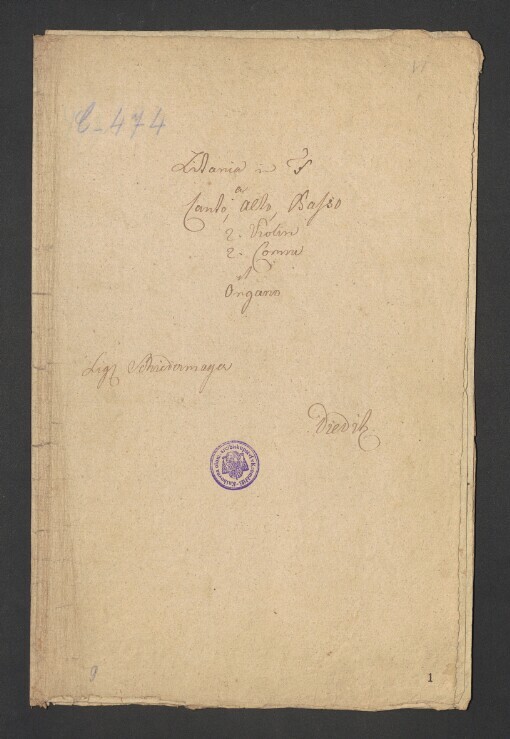 C-474
Litania in F
a
Canto, Alto, Basso
2. Violini
2. Cornu
et
Organo
Sigl Schiedermayer
Diedik
9
1